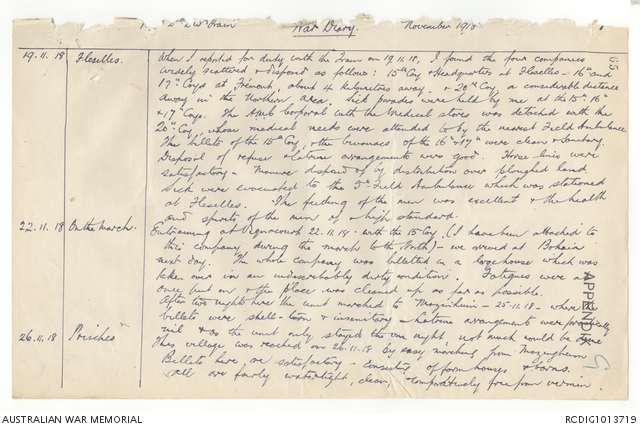 2nd Div Train War Diary. November 1918
65
19.11.18 Flesselles. When I reported for duty with the Train on 19.11.18, I found the four companies
widely scattered & disposed as follows: 15th Coy & Headquarters at Flesselles - 16th and
17th Coys at about 4 kilometres away & 20th Coy, a considerable distance
away in the Northern area. Sick parades were held by me at the 15th 16th
& 17th Coys. The A.M.C. Corporal with the Medical stores was detached with the
20th Coy, whose medical needs were attended to by the nearest Field Ambulance
The billets of the 15th Coy, & the bivouacs of the 16th & 17th were clean & sanitary.
Disposal of refuse & latrine arrangements was good. Horse lines were
satisfactory - Manure disposed of by distribution over ploughed land
Sick were evacuated to the Field Ambulance which was stationed
at Flesselles. The feeding of the men was excellent & the health
and spirits of the men of a high standard.
22.11.18 On the march. Entraining at 22.11.18 - with the 15 Coy, (I have been attached to
this company during the march to the North) - we arrived at Bohain
next day. The whole company was billeted in a large house which was
taken over in an indescribably dirty condition. Fatigues were at
once put on & the place was cleaned up as far as possible.
After two nights here the unit marched to Mazinghein - 25.11.18 - where
billets were shell-torn & insanitary - Latrine arrangements were practically
nil & as the unit only stayed the one night, not much could be done
26.11.18 Prisches This village was reached on 26.11.18 by easy marching from Mazinghein
Billets here are satisfactory - consisting of farm houses & barns.
All are fairly watertight, clean, & comparatively free from vermin.
APPENDIX G
AUSTRALIAN WAR MEMORIAL
RCDIG1013719